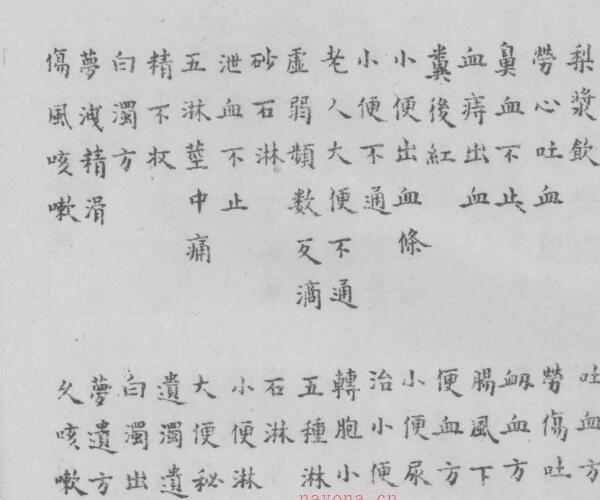 梨漿飲
勞心吐血
鼻血不止
血痔出血
糞後紅
小便出血條
小便不通
老人大便不通
虛弱頻數及滴
砂石淋
泄血不止
五淋莖中痛
精不收
白濁方
夢洩精滑
傷風咳嗽
吐血方
勞傷吐
衂血方
腸風下
便血方
小便尿
治小便
轉胞小
五種淋
石淋
小便淋
大便秘
遺濁遺
白濁出
夢遺方
久咳嗽
nayona.cn